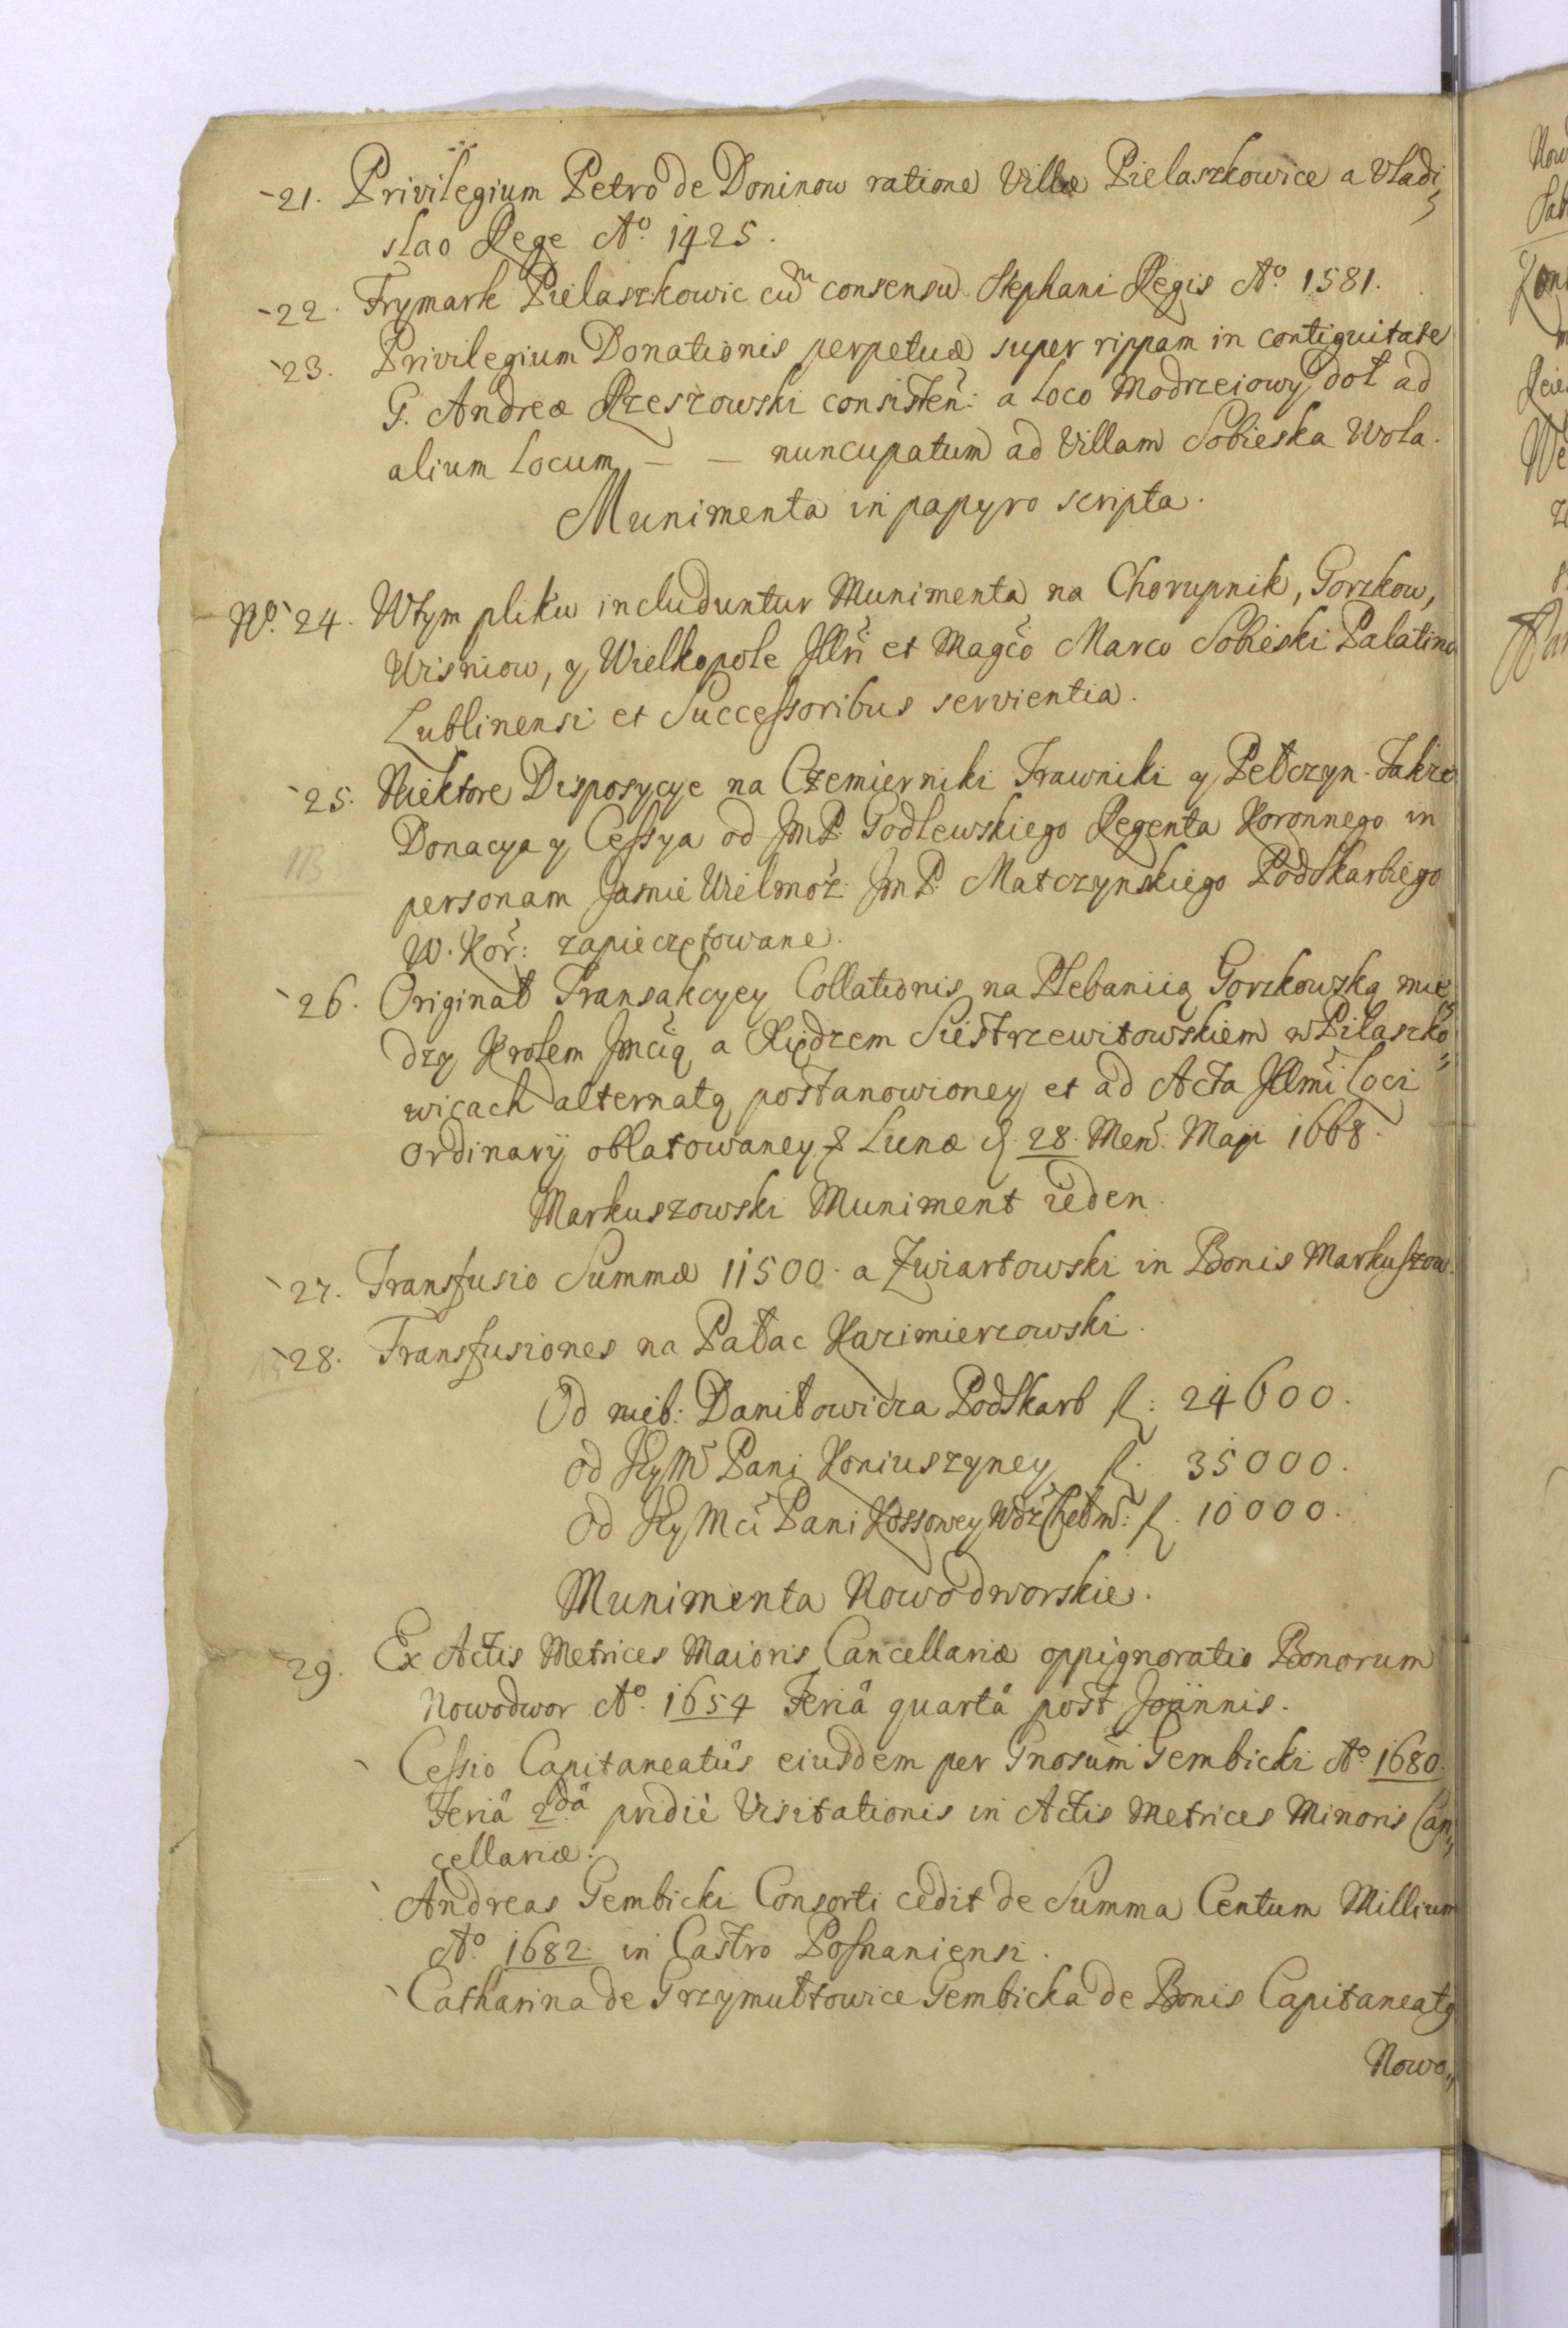 21. Privilegium Petro de Doninow ratione Villæ Pielaszkowice a Vladi,
slao Rege Aº. 1425.
22. Frymark Pielaszkowic cum consensu Stephani Regis Aº. 1581.
23. Privilegium Donationis perpetuæ super rippam in contiguitate
G. Andreæ Rzeszowski consisten: a loco Modrzeiowy doł ad
alium Locum — — nuncupatum ad Villam Sobieska Wola.
Munimenta in papyro scripta.
Nº. 24. Wtym pliku includuntur Munimenta na Chorupnik, Gorzkow,
Wisniow, y Wielkopole Illri et Magco Marco Sobieski Palatino
Lublinensi et Successoribus servientia.
25. Niektore Disposycye na Czemierniki Trawniki y Pełczyn. Takze
Donacya y Cessya od JmP. Godlewskiego Regenta Koronnego in
113
personam Jasnie Wielmoż: JmP. Matczynskiego Podskarbiego
W. Kor: zapieczętowane.
26. Originał Transakcyey Collationis na Plebaniią Gorzkowską mię
dzy Krolem Jmcią a Xiędzem Siestrzewitowskiem w Pilaszko,,
wicach alternatą postanowioney et ad Acta Illmi Loci
Ordinarij oblatowaney f Lunæ d. 28. Men: Maji 1668.
Markuszowski Muniment ieden.
27. Transfusio Summæ 11500. a Zwiartowski in Bonis Markuszow.
28. Transfusiones na Pałac Kazimierzowski.
Od nieb: Daniłowicza Podskarb f: 24600.
od JeyM Pani Koniuszyney f. 35000.
Od JeyMci Pani Kossowey Wdz Chełm: f. 10000.
Munimenta Nowodworskie.
29. Ex Actis Metrices Maioris Cancellariæ oppignoratio Bonorum
Nowodwor Aº. 1654 Feriâ quartâ post Joannis.
Cessio Capitaneatûs eiusdem per Gnosum Gembicki Aº. 1680.
Feriâ 2dâ pridiè Visitationis in Actis Metrices Minoris Can,,
cellariæ.
Andreas Gembicki Consorti cedit de Summa Centum Millium
Aº. 1682. in Castro Posnaniensi.
Catharina de Grzymułtowice Gembicka de Bonis Capitaneatq
Nowo,,